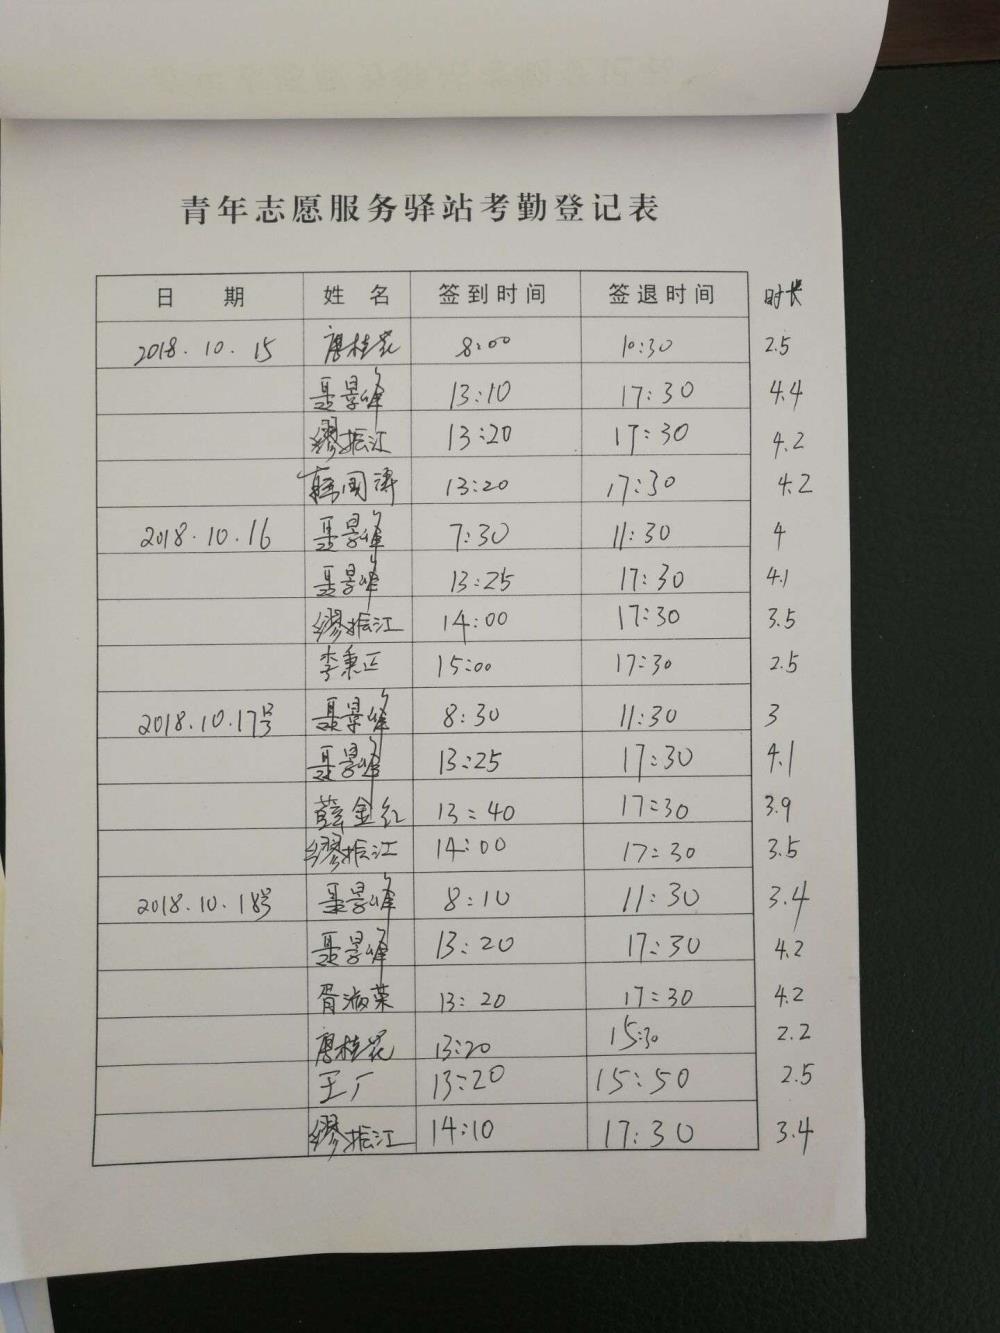 青年志愿服务驿站考勤登记表
日 期 姓 名 签到时间 签退时间 时长
2018.10.15 唐桂花 8:00 10:30 2.5
聂景峰 13:10 17:30 4.4
缪振江 13:20 17:30 4.2
韩国涛 13:20 17:30 4.2
2018.10.16 聂景峰 7:30 11:30 4
聂景峰 13:25 17:30 4.1
缪振江 14:00 17:30 3.5
李秉正 15:00 17:30 2.5
2018.10.17号 聂景峰 8:30 11:30 3
聂景峰 13:25 17:30 4.1
薛金红 13:40 17:30 3.9
缪振江 14:00 17:30 3.5
2018.10.18号 聂景峰 8:10 11:30 3.4
聂景峰 13:20 17:30 4.2
胥淑荣 13:20 17:30 4.2
唐桂花 13:20 15:30 2.2
王厂 13:20 15:50 2.5
缪振江 14:10 17:30 3.4